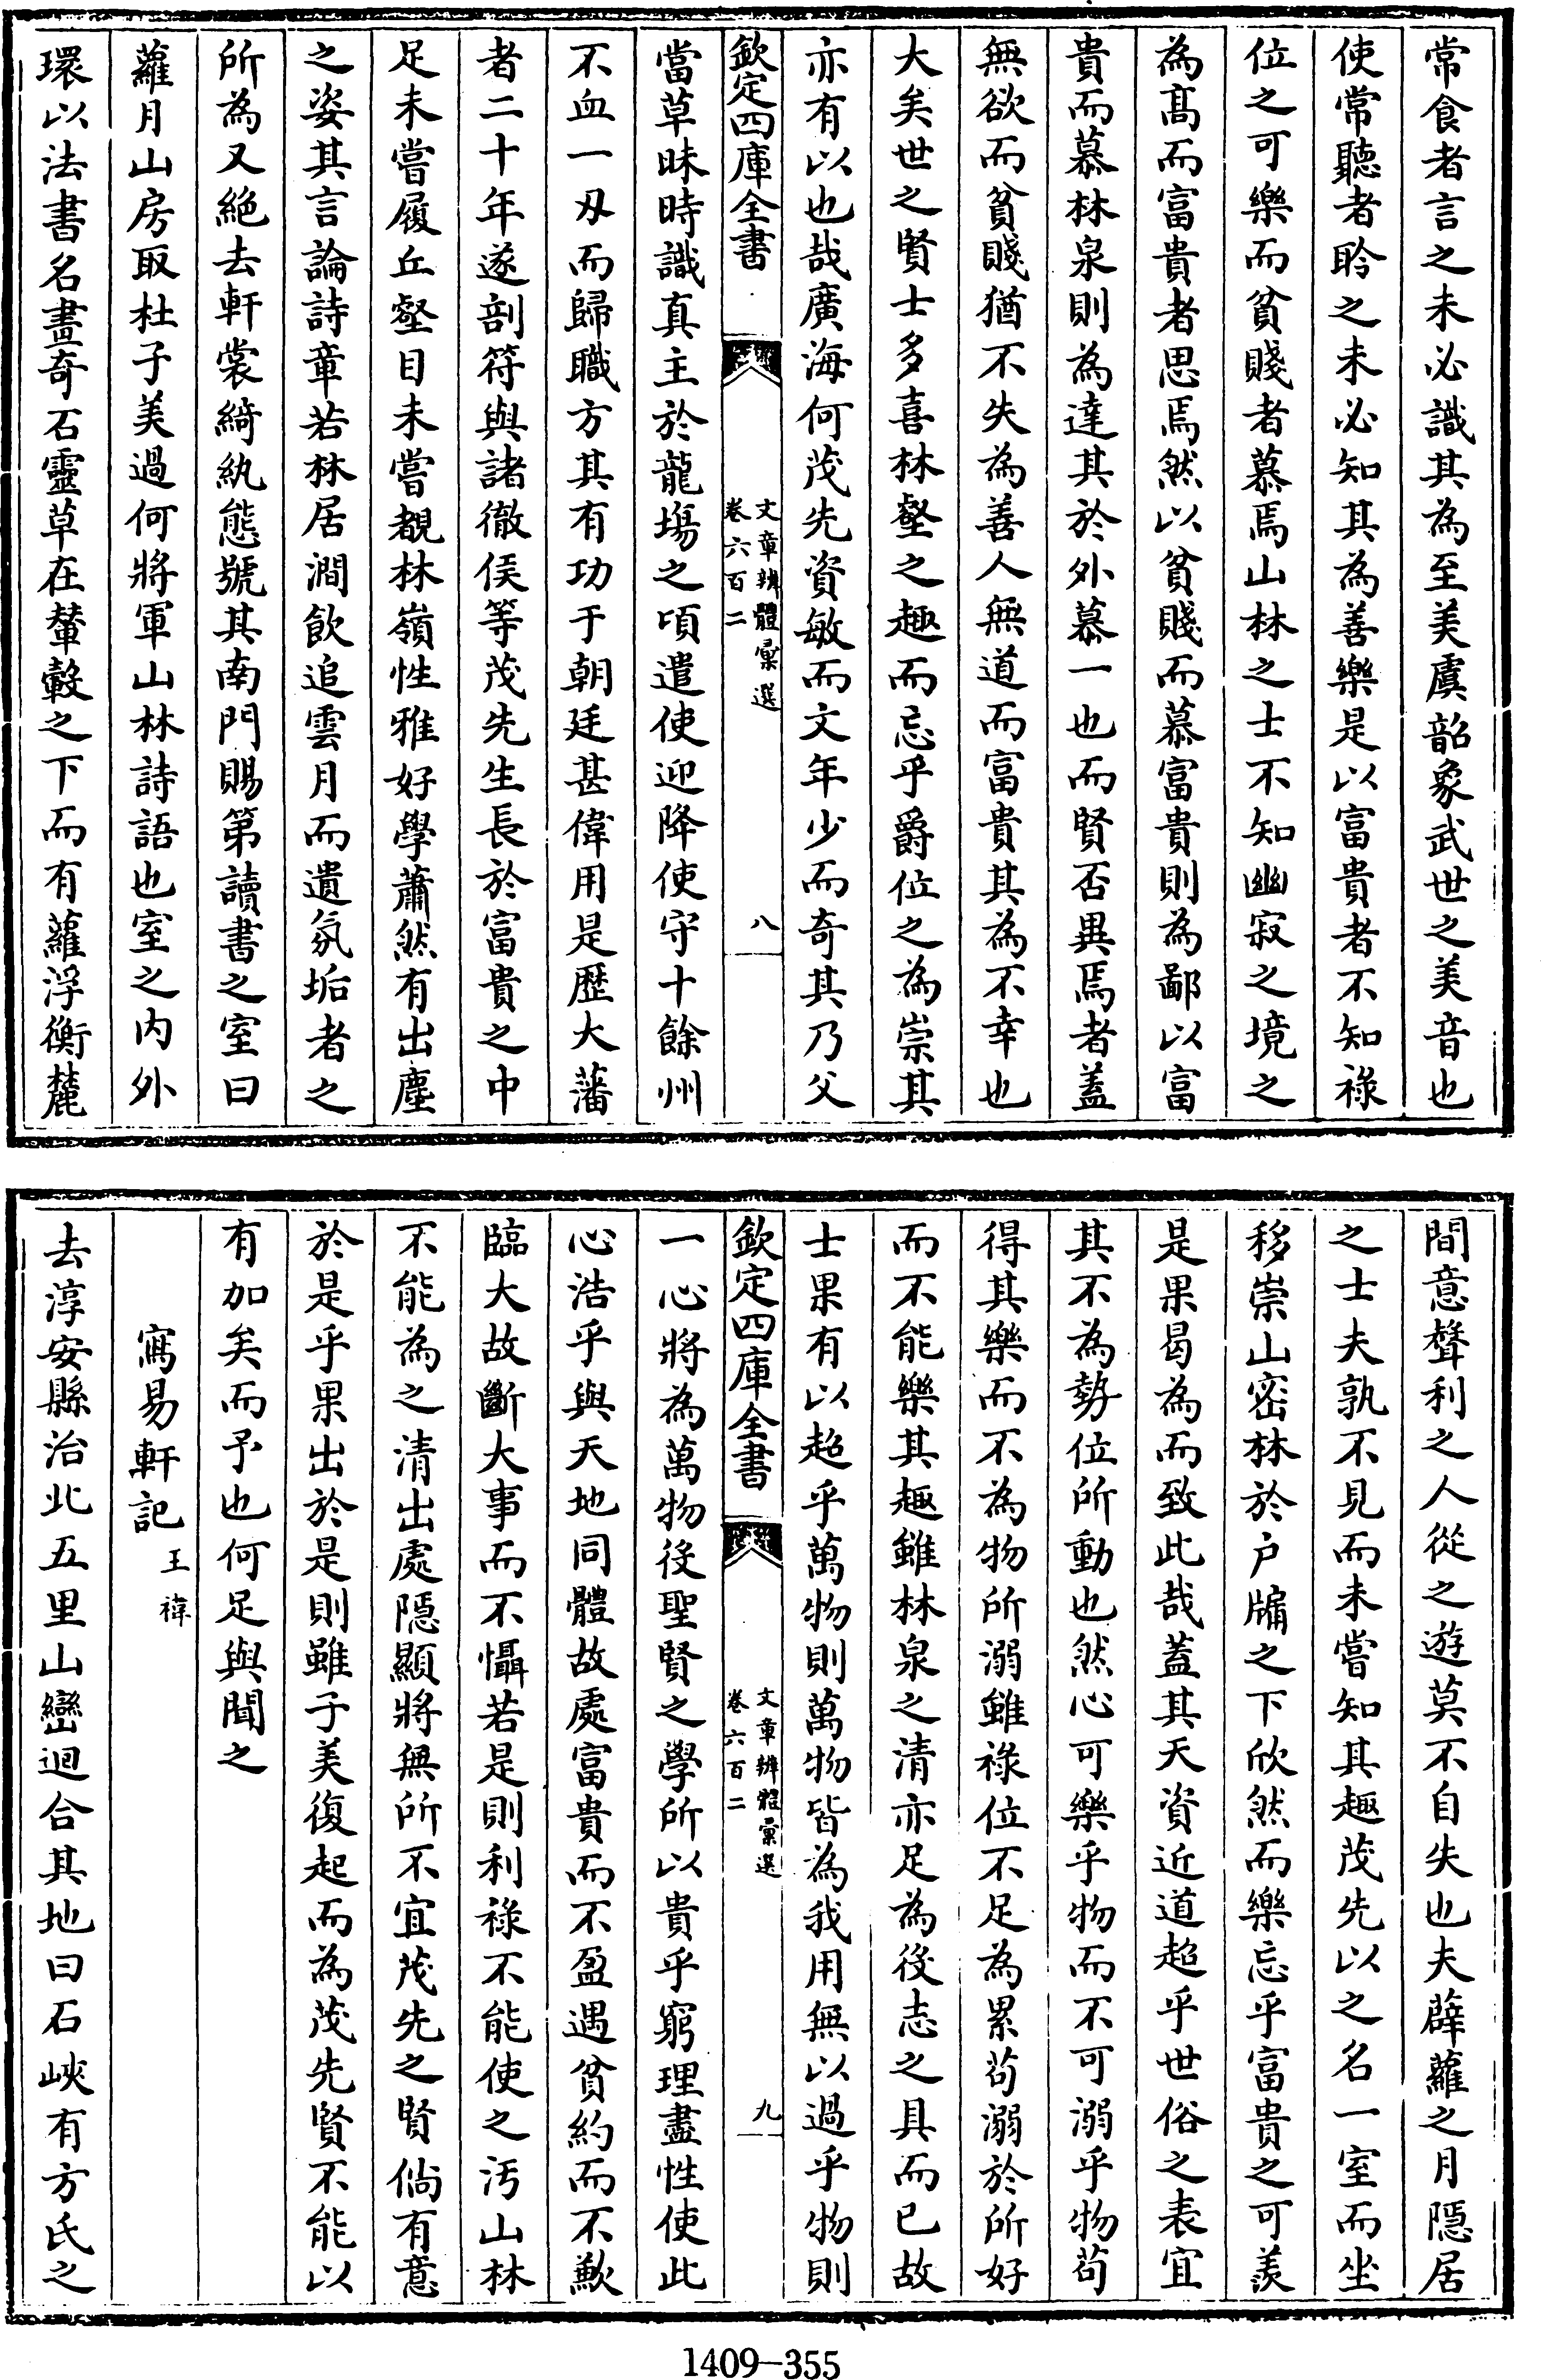 常食者言之未必識其為至美虞韶象武世之美音也
使常聽者聆之未必知其為善樂是以富貴者不知祿
位之可樂而貧賤者慕焉山林之士不知幽寂之境之
為髙而富貴者思焉然以貧賤而慕富貴則為鄙以富
貴而慕林泉則為達其於外慕一也而賢否異焉者蓋
無欲而貧賤猶不失為善人無道而富貴其為不幸也
大矣世之賢士多喜林壑之趣而忘乎爵位之為崇其
亦有以也哉廣海何茂先資敏而文年少而奇其乃父
欽定四庫全書
文章辨體彙選
卷六百二
八
當草昧時識真主於龍塲之頃遣使迎降使守十餘州
不血一刄而歸職方其有功于朝廷甚偉用是歴大藩
者二十年遂剖符與諸徹侯等茂先生長於富貴之中
足未嘗履丘壑目未嘗覩林嶺性雅好學蕭然有出塵
之姿其言論詩章若林居澗飲追雲月而遺氛垢者之
所為又絶去軒裳綺紈態號其南門賜第讀書之室曰
蘿月山房取杜子美過何將軍山林詩語也室之内外
環以法書名畫奇石靈草在輦轂之下而有蘿浮衡麓
間意聲利之人從之遊莫不自失也夫薜蘿之月隱居
之士夫孰不見而未嘗知其趣茂先以之名一室而坐
移崇山密林於户牖之下欣然而樂忘乎富貴之可羨
是果曷為而致此哉蓋其天資近道超乎世俗之表宜
其不為勢位所動也然心可樂乎物而不可溺乎物苟
得其樂而不為物所溺雖祿位不足為累苟溺於所好
而不能樂其趣雖林泉之清亦足為役志之具而已故
士果有以超乎萬物則萬物皆為我用無以過乎物則
欽定四庫全書
文章辨體彙選
卷六百二
九
一心將為萬物役聖賢之學所以貴乎窮理盡性使此
心浩乎與天地同體故處富貴而不盈遇貧約而不歉
臨大故斷大事而不懾若是則利祿不能使之汚山林
不能為之清出處隱顯將無所不宜茂先之賢倘有意
於是乎果出於是則雖子美復起而為茂先賢不能以
有加矣而予也何足與聞之
寫易軒記 王禕
去淳安縣治北五里山巒迴合其地曰石峽有方氏之
1409-355